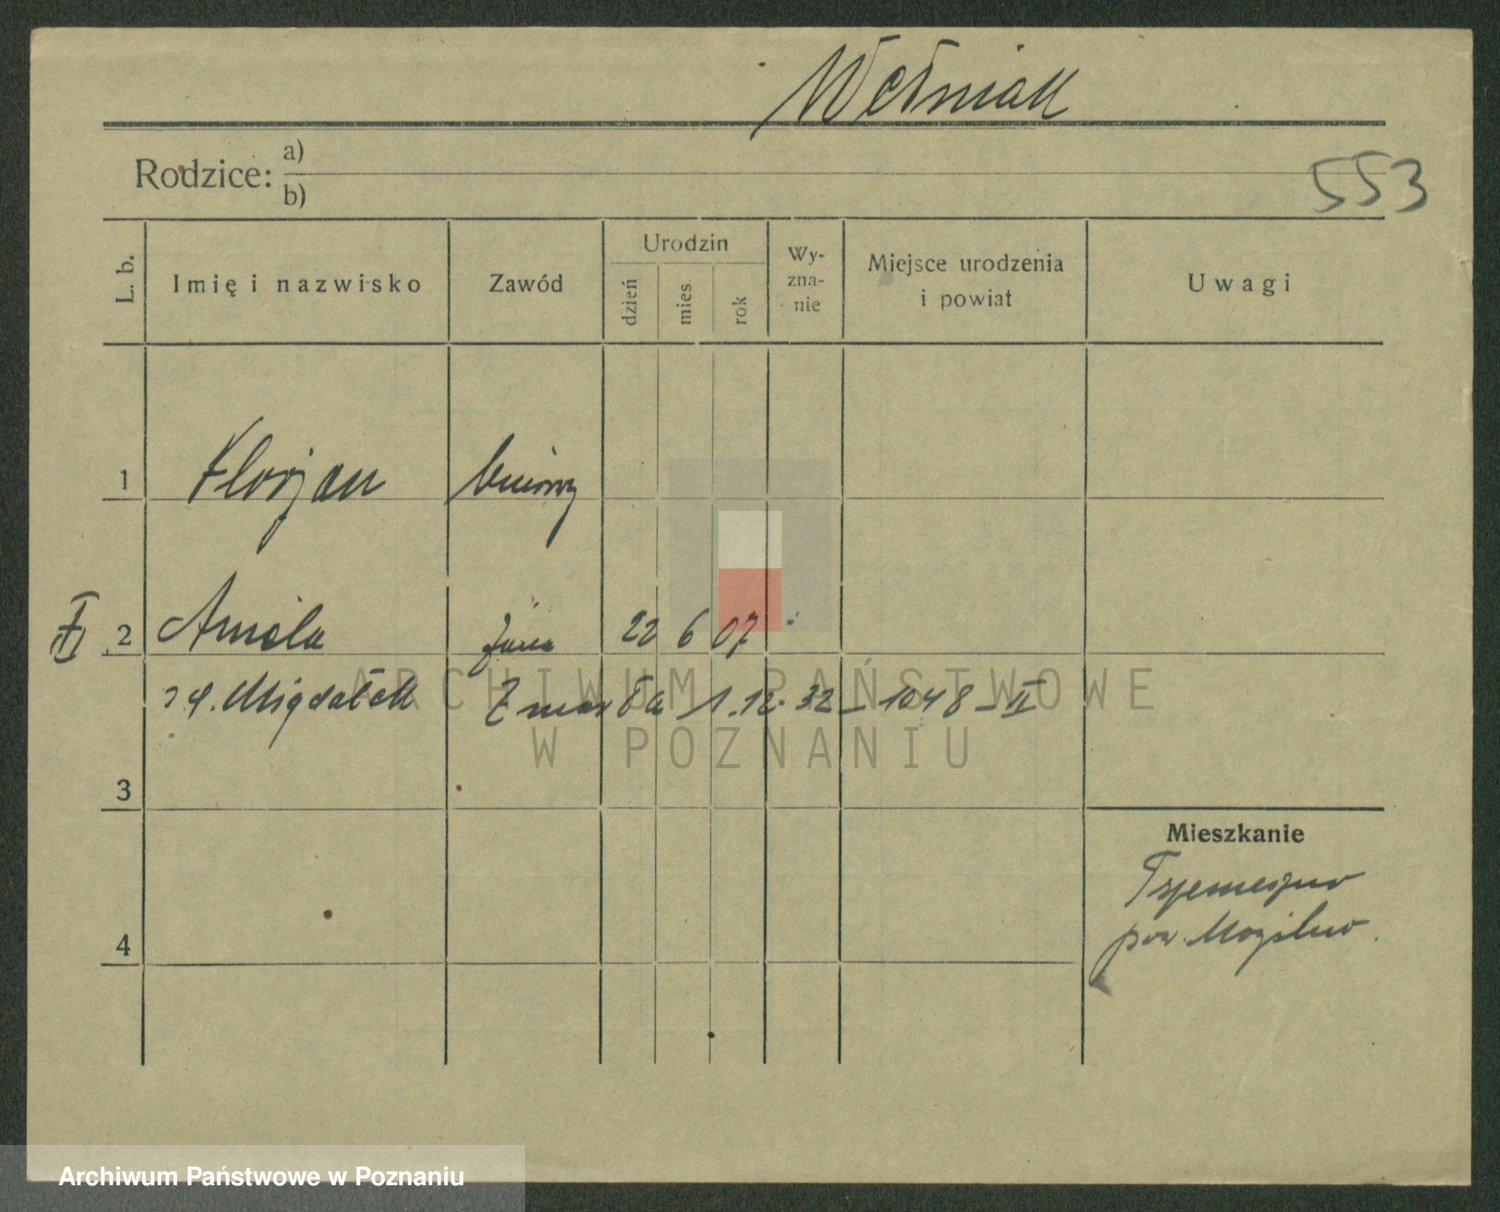 Wełniak
Rodzice: a)
b)
553
L. b.
Imię i nazwisko
Zawód
Urodzin
dzień
mies
rok
Wy-
zna-
nie
Miejsce urodzenia
i powiat
Uwagi
1 Florjan
2 Aniela żona 22 6 07
z d. Migdałek Zmarła 1.12.32 – 1048 – II
3
Mieszkanie
Trzemeszno
pow. Mogilno.
4
ARCHIWUM PAŃSTWOWE
W POZNANIU
Archiwum Państwowe w Poznaniu